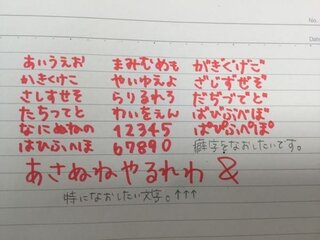 No.
Date
あいうえお まみむめも がぎぐげご
かきくけこ やいゆえよ ざじずぜぞ
さしすせそ らりるれろ だぢづでど
たちつてと わいをえん ばびぶべぼ
なにぬねの 12345 ぱぴぷぺぽ
はひふへほ 67890 癖字をなおしたいです。
あさぬねやるれわ &
特になおしたい文字。↑↑↑